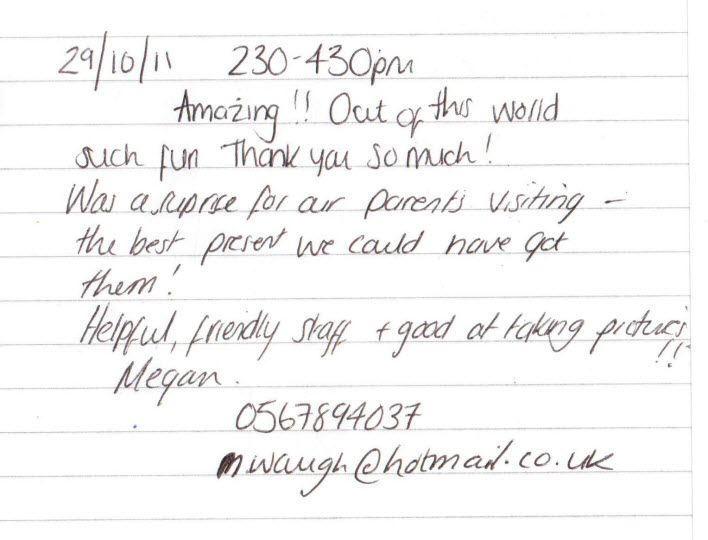 29/10/11 230-430pm
Amazing!! Out of this world
such fun Thank you so much!
Was a suprise for our parents visiting -
the best present we could have got
them!
Helpful, friendly staff + good at taking pictures
!!
Megan.
0567894037
m.waugh@hotmail.co.uk